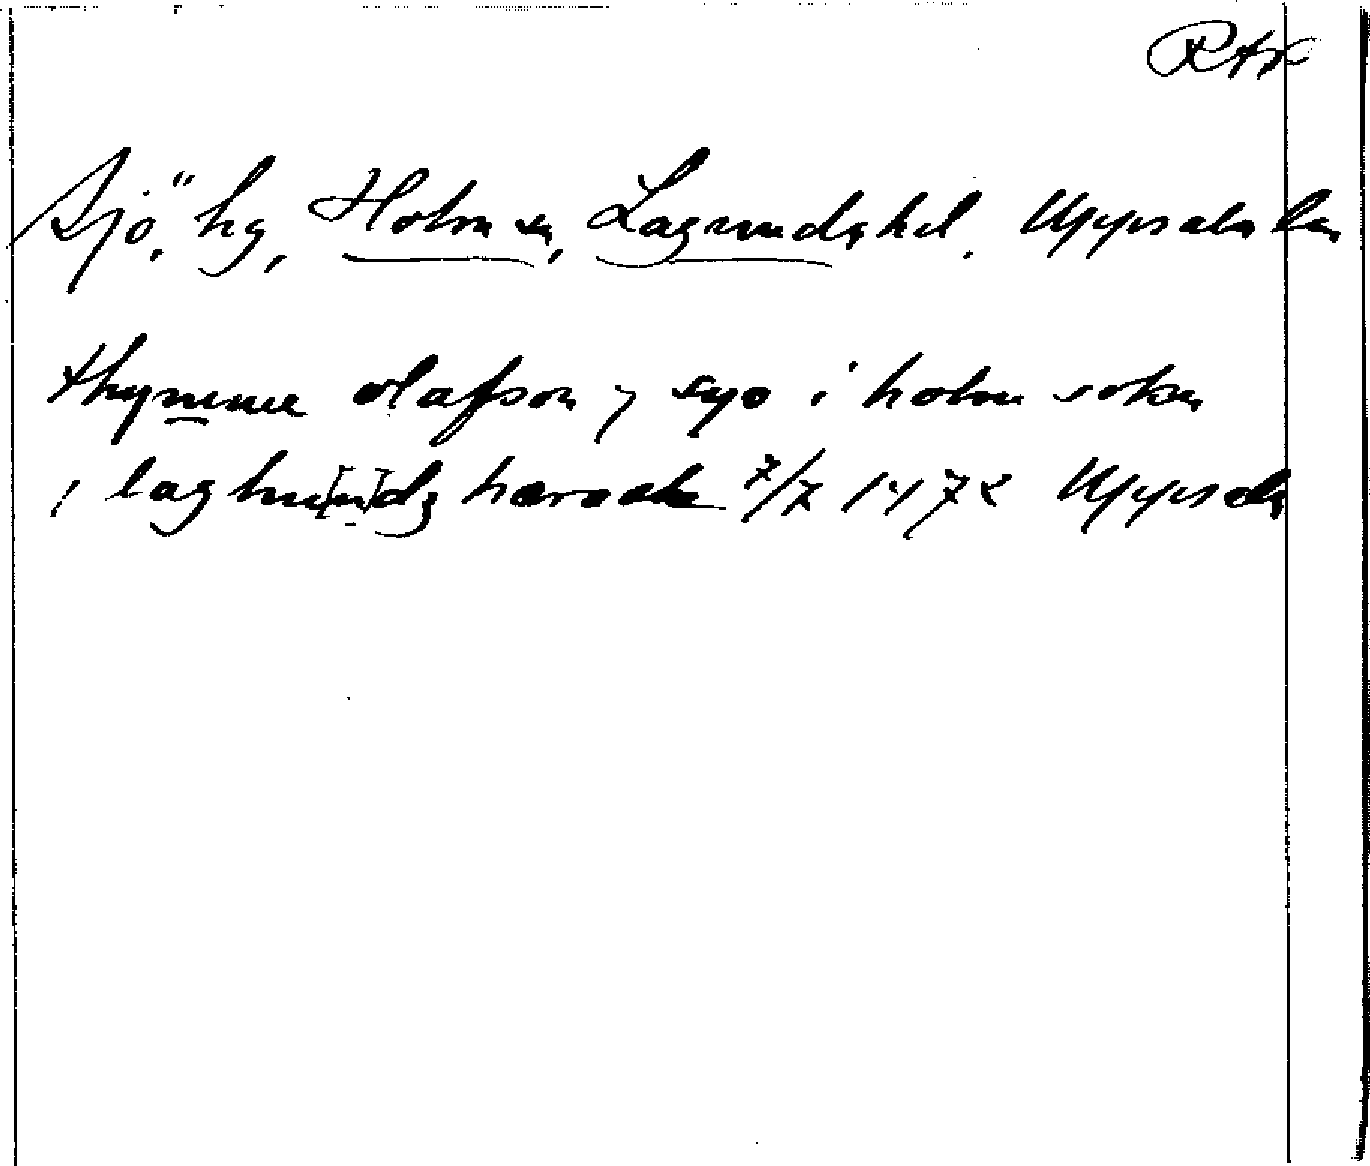 RAP
Sjö, hg, Holm sn, Lagundahd. Uppsala län
thymme olafson j syo i holm sokn
i laghu[n]dz hærade 7/7 1478 Uppsala